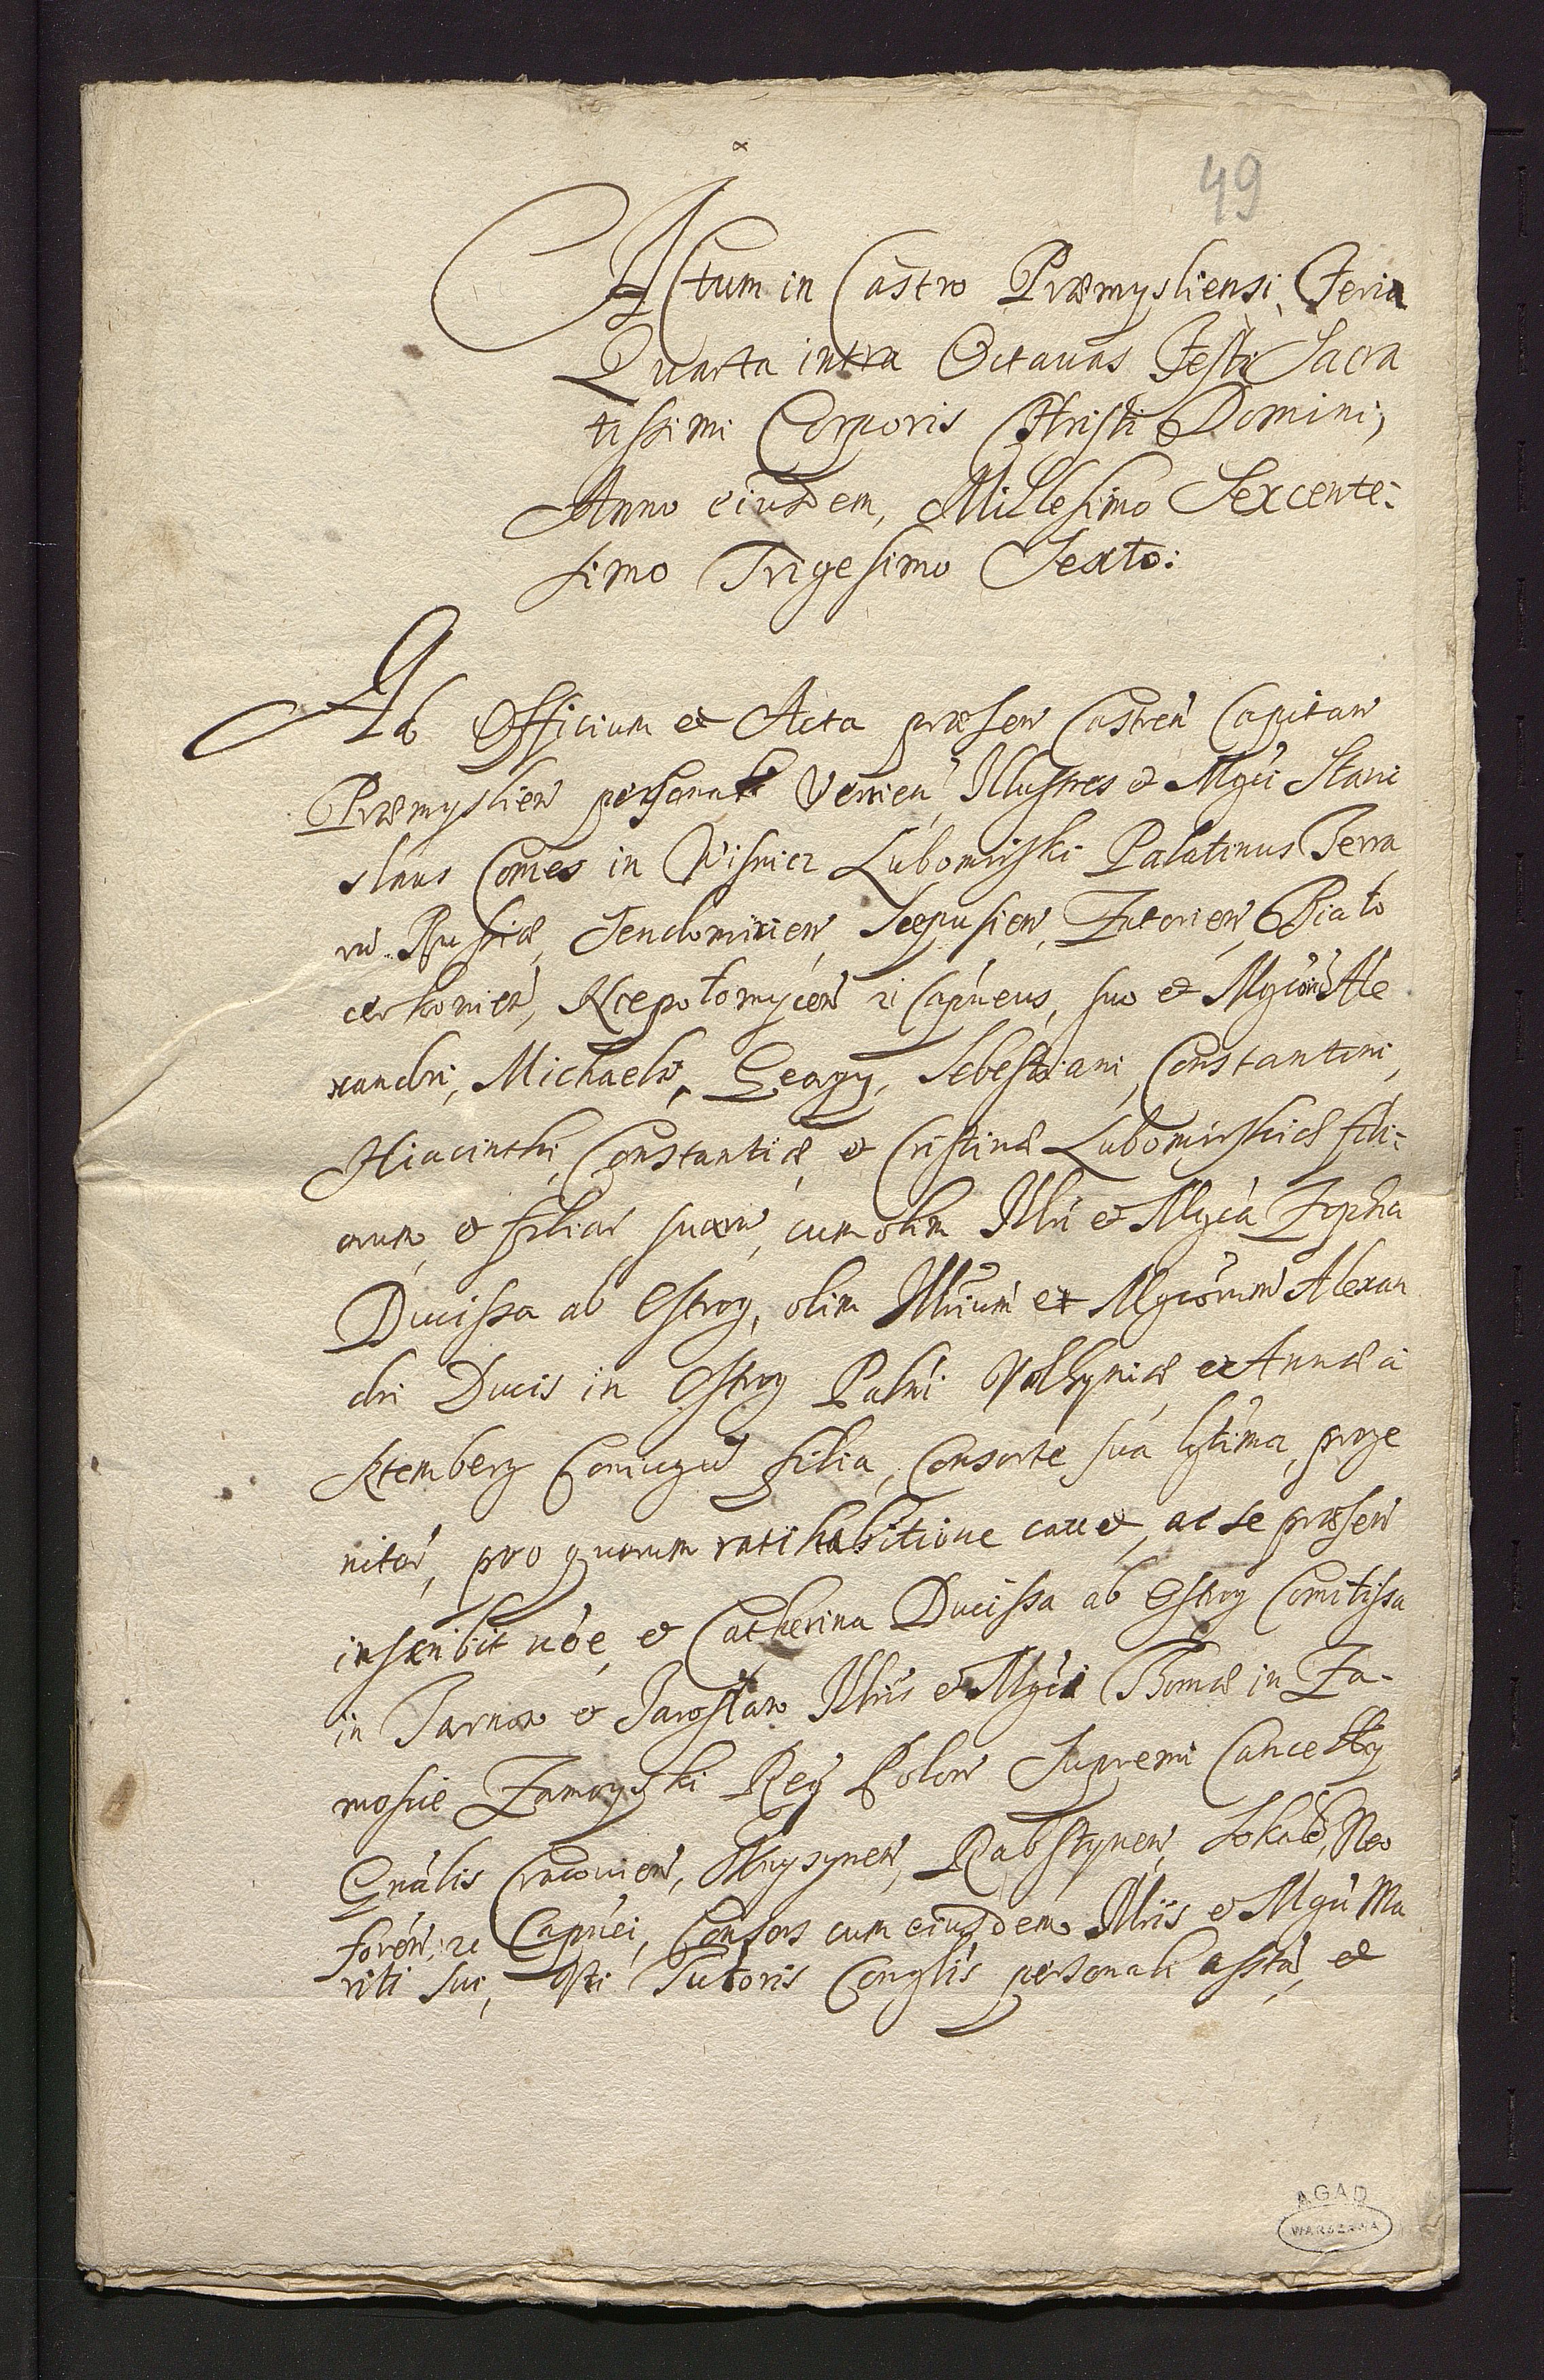 49
Actum in Castro Præmysliensi, Feria
Quarta intra Octauas Festi Sacra
tissimi Corporis Christi Domini,
Anno eiusdem, Millesimo Sexcente:
simo Trigesimo Sexto:
Ad Officium et Acta præsen Castreñ Capitan
Præmyslien personali Venien Illustres et Mgci Stani
slaus Comes in Wisnicz Lubomirski Palatinus Terra
rū Russiæ, Sendomirien, Scepusien, Zatorien, Biało
cerkouien, Niepołomycen zc Capneus, suo et Mgcorū Ale
xandri, Michaelis, Georgy, Sebestiani, Constantini,
Hiacinthi, Constantiæ, et Cristinæ Lubomirskich fili:
orum, et filiar suarū, cum olim Illri et Mgca Zophia
Ducissa ab Ostrog, olim Illriūm et Mgcorum Alexan
dri Ducis in Ostrog Palni Volhyniæ et Annæ a
Stemberg Coniugū filia, Consorte sua lgtima, proge
nitor, pro quorum ratihabitione cauet, ac se præsen
inscribit nōe, et Catherina Ducissa ab Ostrog Comitissa
in Tarnow et Jarosław Illris et Mgci Thomæ in Za-
moscie Zamoyski Reg Polon Supremi Cancelly
Gnalis Cracouien, Knyszynen, Rabsztynen, Sokaln, Neo
foren, zc Capnei, Consors cum eiusdem Illris et Mgci Ma
riti sui, Vti Tutoris Conglis personali asstā, et
AGAD
WARSZAWA